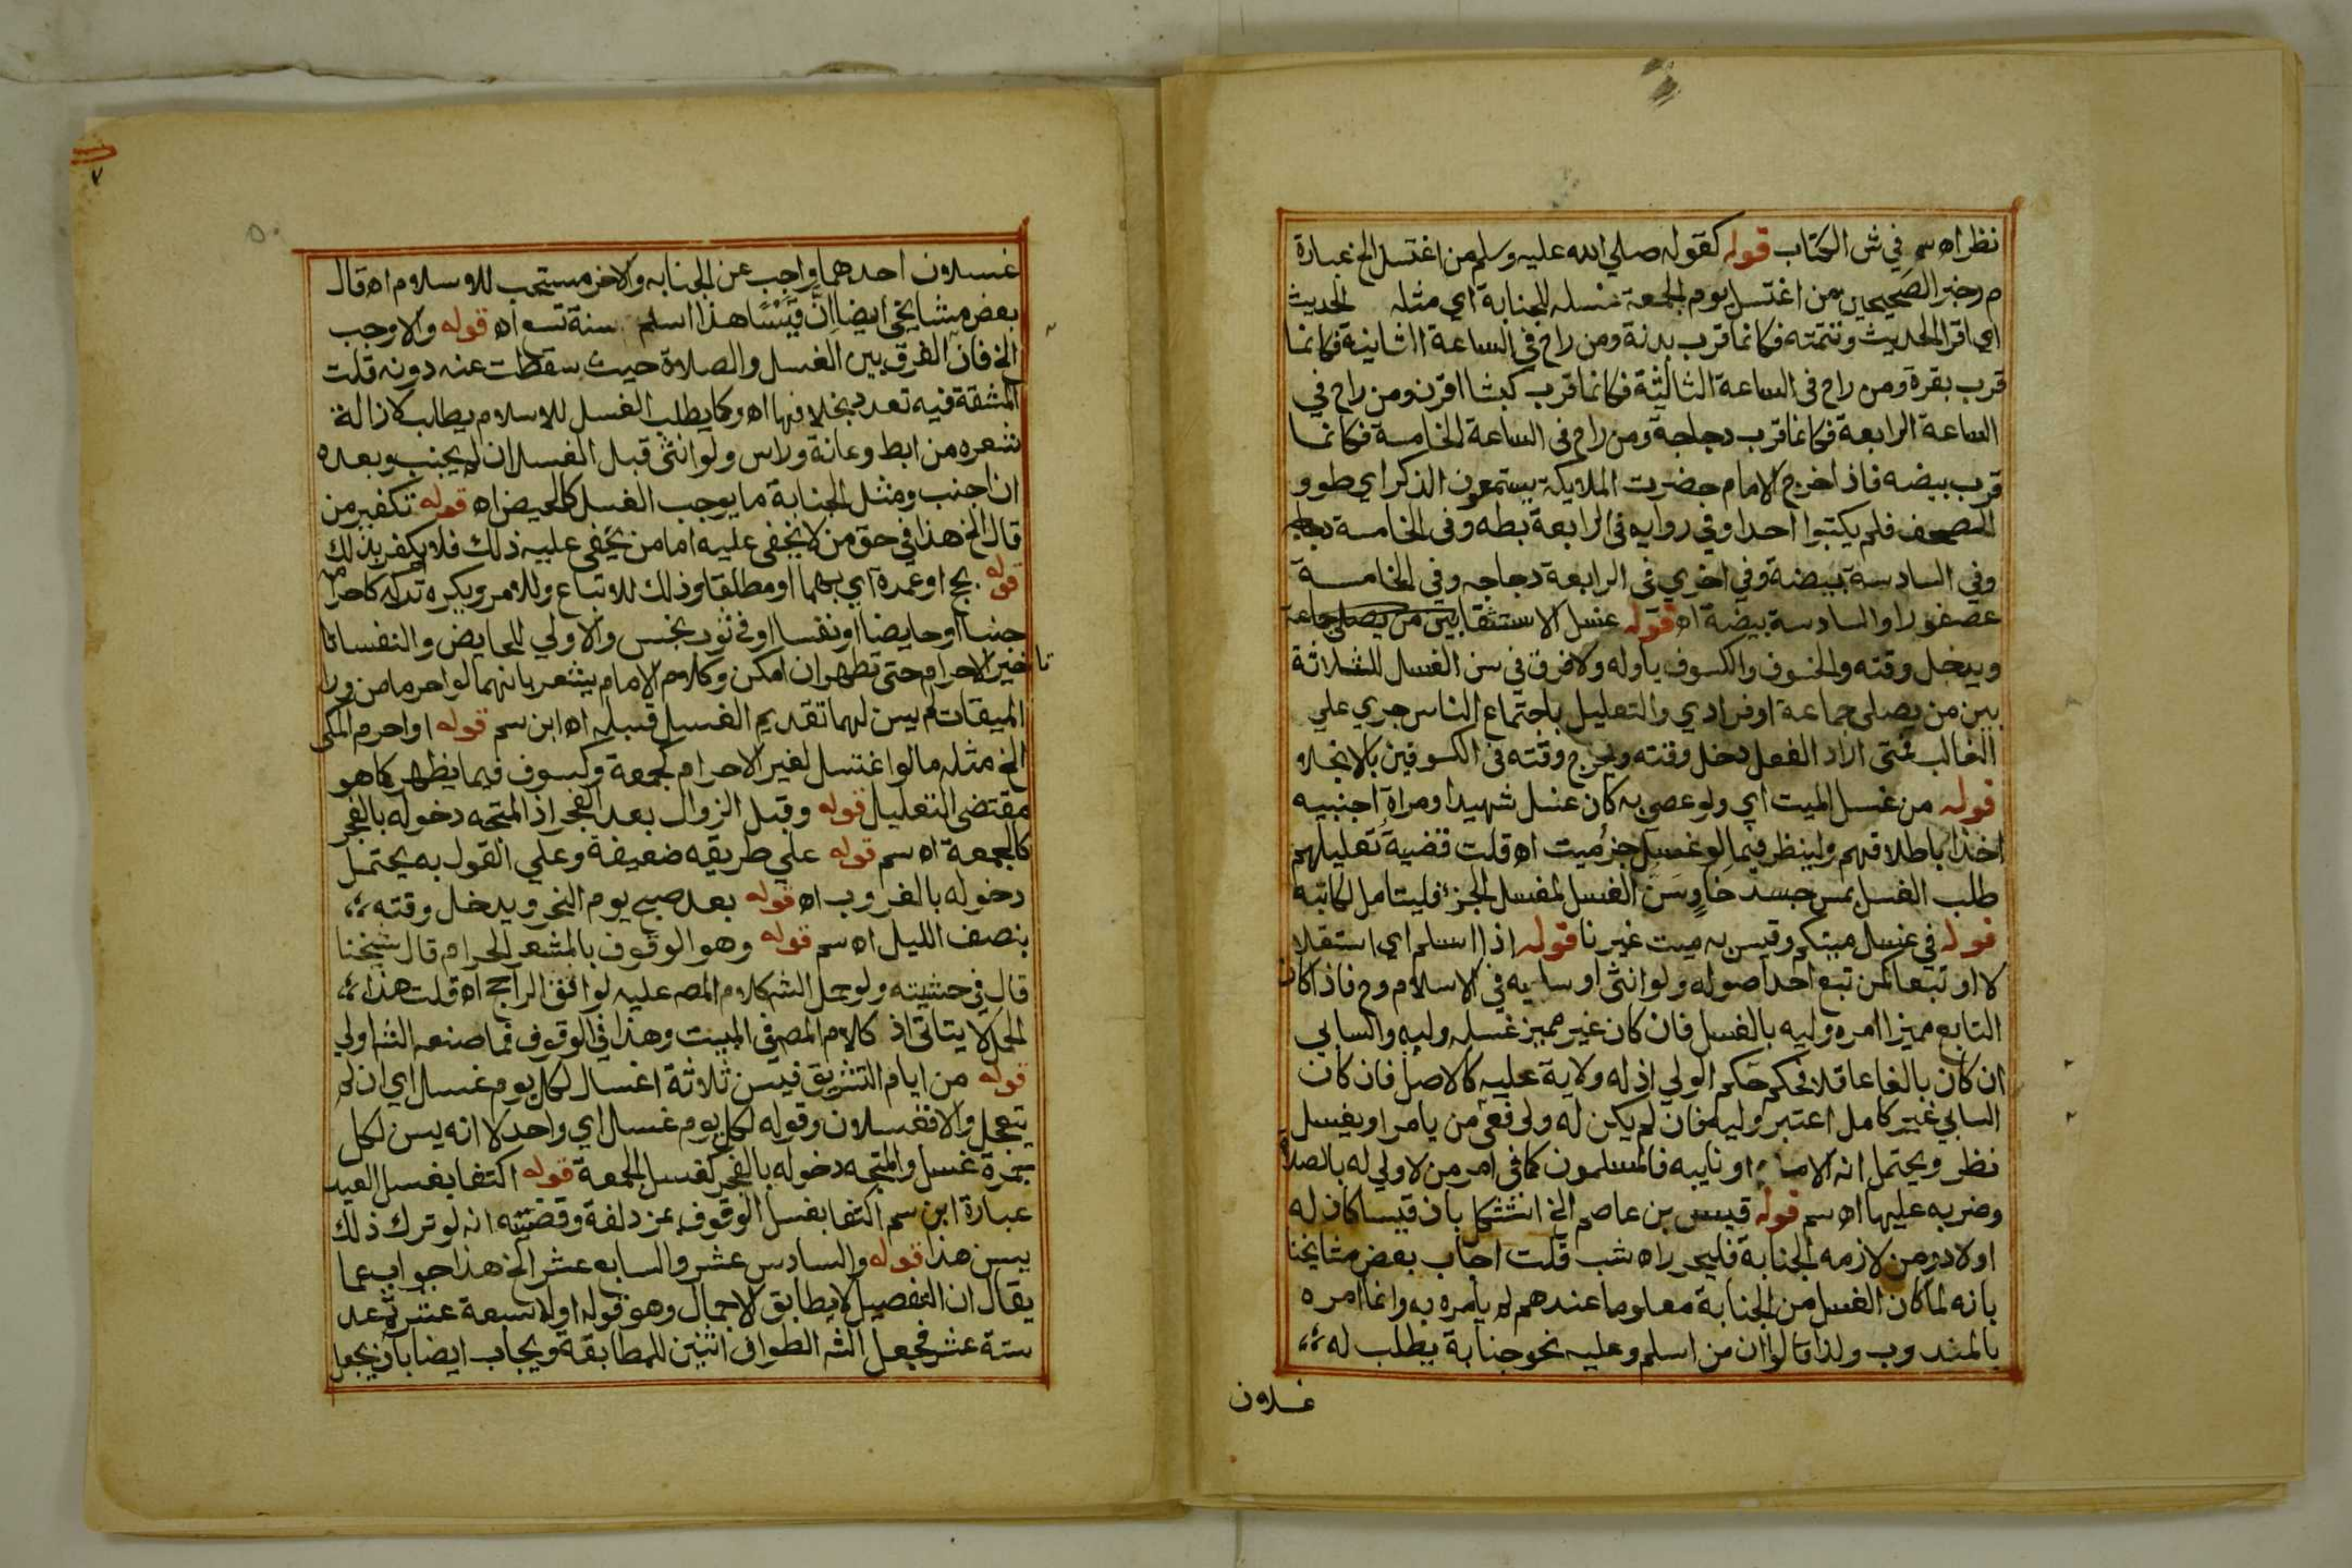 نظر اه سم في ش الكتاب قوله كقوله صلي الله عليه وسلم من اغتسل الخ عبارة
م ر خبر الصحيحين من اغتسل يوم الجمعة غسله للجنابة اي مثله الحديث
اي اقرا الحديث وتتمته فكانما قرب بدنة ومن راح في الساعة الثانية فكانما
قرب بقرة ومن راح في الساعة الثالثة فكانما قرب كبشا اقرن ومن راح في
الساعة الرابعة فكانما قرب دجاجة ومن راح في الساعة الخامسة فكانما
قرب بيضه فاذا خرج الامام حضرت الملايكة يستمعون الذكر اي طوو
الصحف فلم يكتبوا احدا وفي روايه في الرابعة بطه وفي الخامسة دجاجه
وفي السادسة بيضة وفي اخري في الرابعة دجاجه وفي الخامسة
عصفورا والسادسة بيضة اه قوله غسل الاستسقا بين من يصلي جماعة
ويدخل وقته والخسوف والكسوف باوله ولا فرق في سن الغسل للثلاثة
بين من يصلي جماعة او فرادي والتعليل باجتماع الناس جري علي
الغالب فمتى اراد الفعل دخل وقته ويخرج وقته في الكسوفين بالانجلاء
قوله من غسل الميت اي ولو عصي به كان غسل شهيدا ومراة اجنبيه
اخذا باطلاقهم ولينظر فيما لو غسل جزء ميت اه قلت قضية تعليلهم
طلب الغسل بمس جسد خاو سن الغسل لمغسل الجزء فليتامل لكاتبه
قوله في غسل ميتكم وقيس به ميت غيرنا قوله اذا اسلم اي استقلا
لا او تبعا لمن تبع احد اصوله ولو انثى او سابيه في الاسلام وح فاذا كان
التابع مميزا امره وليه بالغسل فان كان غير مميز غسله وليه والسابي
ان كان بالغا عاقلا فحكم حكم الولي اذ له ولاية عليه كالاصل فان كان
السابي غير كامل اعتبر وليه فان لم يكن له ولي ففي من يامر او يغسل
نظر ويحتمل انه الامام او نايبه فالمسلمون كما في امر من لا ولي له بالصلاة
وضربه عليها اه سم قوله قيس بن عاصم الخ استشكل بان قيسا كان له
اولاد ومن لازمه الجنابة فليحرر اه شب قلت اجاب بعض مشايخنا
بانه لما كان الغسل من الجنابة معلوما عندهم لم يامره به وانما امره
بالمندوب ولذا قالوا ان من اسلم وعليه نحو جنابة يطلب له
غسلان
غسلان احدهما واجب عن الجنابه والاخر مستحب للاسلام اه قال
بعض مشايخي ايضا ان قيسا هذا اسلم سنة تسع اه قوله والاوجب
الخ فان الفرق بين الغسل والصلاة حيث سقطت عنه دونه قلت
المشقة فيه تعدد بخلافها اه وكما يطلب الغسل للاسلام يطلب كازالة
شعره من ابط وعانة وراس ولو انثى قبل الغسل ان لم يجنب وبعده
ان اجنب ومثل الجنابة ما يوجب الغسل كالحيض اه قوله تكفير من
قال الخ هذا في حق من لا يخفى عليه اما من يخفى عليه ذلك فلا يكفر بذلك
قوله بحج او عمرة اي بهما او مطلقا وذلك للاتباع وللامر ويكره تركه كاحرامه
جنبا او حايضا او نفسا او في ثوب نجس والاولي للحايض والنفسا
تاخير الاحرام حتى تطهر ان امكن وكلام الامام يشعر بانهما لو احرما من ورا
الميقات لم يسن لهما تقديم الغسل قبله اه ابن سم قوله او احرم المكي
الخ مثله ما لو اغتسل لغير الاحرام كجمعة وكسوف فيما يظهر كما هو
مقتضى التعليل قوله وقبل الزوال بعد الفجر اذ المتجه دخوله بالفجر
كالجمعة اه سم قوله علي طريقه ضعيفة وعلي القول به يحتمل
دخوله بالغروب اه قوله بعد صبح يوم النحر ويدخل وقته
بنصف الليل اه سم قوله وهو الوقوف بالمشعر الحرام قال شيخنا
قال في حشيته ولو حمل الشه كلام المصه عليه لوافق الراجح اه قلت هذا
الحمل لا يتاتى اذ كلام المصه في المبيت وهذا في الوقوف فما صنعه الشه اولي
قوله من ايام التشريق فيسن ثلاثة اغسال لكل يوم غسل اي ان لم
يتعجل والا فغسلان وقوله لكل يوم غسل اي واحد لا انه يسن لكل
جمرة غسل والمتجه دخوله بالفجر كغسل الجمعة قوله اكتفا بغسل العيد
عبارة ابن سم اكتفا بغسل الوقوف بمزدلفة وقضيته انه لو ترك ذلك
يسن هذا قوله والسادس عشر والسابع عشر الخ هذا جواب عما
يقال ان التفصيل لا يطابق الاجمال وهو قوله اولا سبعة عشر ثم عد
ستة عشر فجعل الشه الطواف اثنين للمطابقة ويجاب ايضا بان يجعل